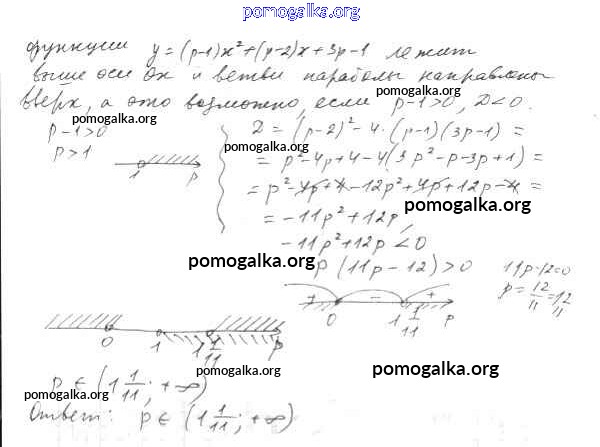 pomogalka.org
функции y=(p-1)x²+(p-2)x+3p-1 лежит
выше оси Ox и ветви параболы направлены
вверх, а это возможно, если p-1>0, D<0.
pomogalka.org
pomogalka.org
p-1>0
p>1
1 p
D = (p-2)² - 4·(p-1)(3p-1) =
pomogalka.org
= p²-4p+4-4(3p²-p-3p+1) =
= p²-4p+4-12p²+4p+12p-4 =
pomogalka.org
= -11p²+12p,
-11p²+12p<0
pomogalka.org
p(11p-12)>0
11p-12=0
p = 12/11 = 1 1/11
+ - +
0 1 1/11 p
0 1 1 1/11 p
pomogalka.org
p ∈ (1 1/11; +∞)
pomogalka.org
pomogalka.org
Ответ: p ∈ (1 1/11; +∞)
pomogalka.org